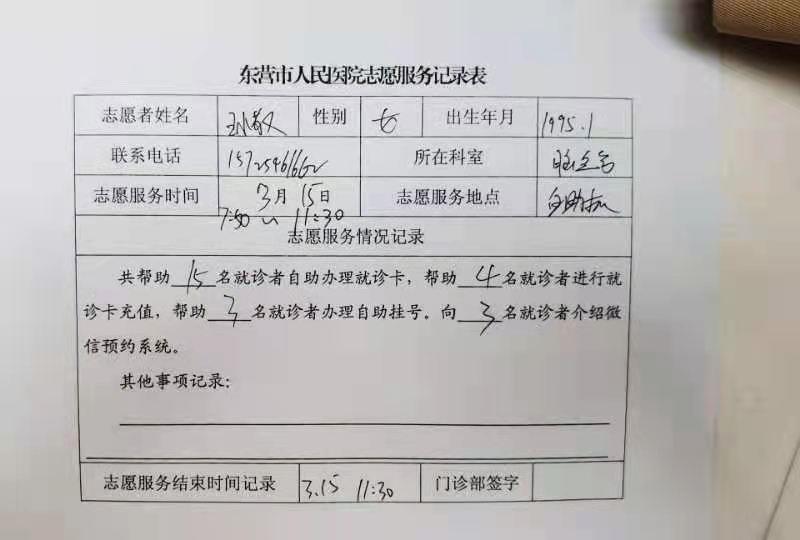 东营市人民医院志愿服务记录表
志愿者姓名 性别 女 出生年月 1995.1
联系电话 所在科室
志愿服务时间 3月15日 志愿服务地点 自助机
7:50 ~ 11:30
志愿服务情况记录
共帮助15名就诊者自助办理就诊卡，帮助4名就诊者进行就
诊卡充值，帮助3名就诊者办理自助挂号。向3名就诊者介绍微
信预约系统。
其他事项记录：
志愿服务结束时间记录 3.15 11:30 门诊部签字